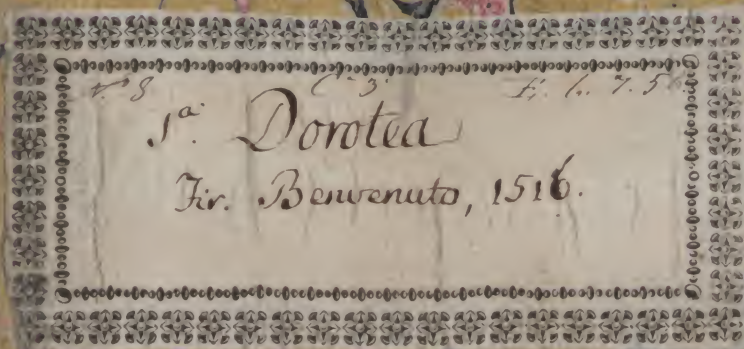 Nº 8 C. 3.
Sᵃ. Dorotea
Fir. Benvenuto, 1516.